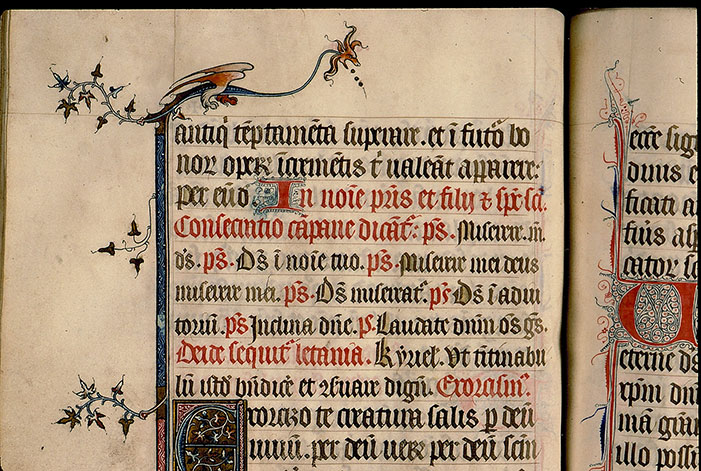 antiq̄ tēptamēta superare. et ī futō bo
nor᷑ oper᷑ īcremētis t̄ ualeāt apparere:
per eūd̄ In noīe pr̄is et filij & sp̄s sc̄i.
Consecratio cāpane dicāt᷑: ps̄. Miserere. m̄.
d̄s. ps̄. D̄s ī noīe tuo. ps̄. Miserere mei deus
miserere mei. ps̄. D̄s misereat᷑. ps̄ D̄s ī adiu
toriū. ps̄ Inclina dn̄e. ps̄. Laudate dn̄m om̄s gē̄s.
Deīde sequit᷑ letania. Kyriel̄. Ut tītīnabu
lū istō bn̄dicē et cōsecrare digū. Exorcism᷑.
Exorcizo te creatura salis p̱ deū
uiuū. per deū uerū per deū scīn
ecce sig
diuis e
ficati a
fiūs as
cator sc
eterne ds̄
xp̄m dn̄
mā
illo poss